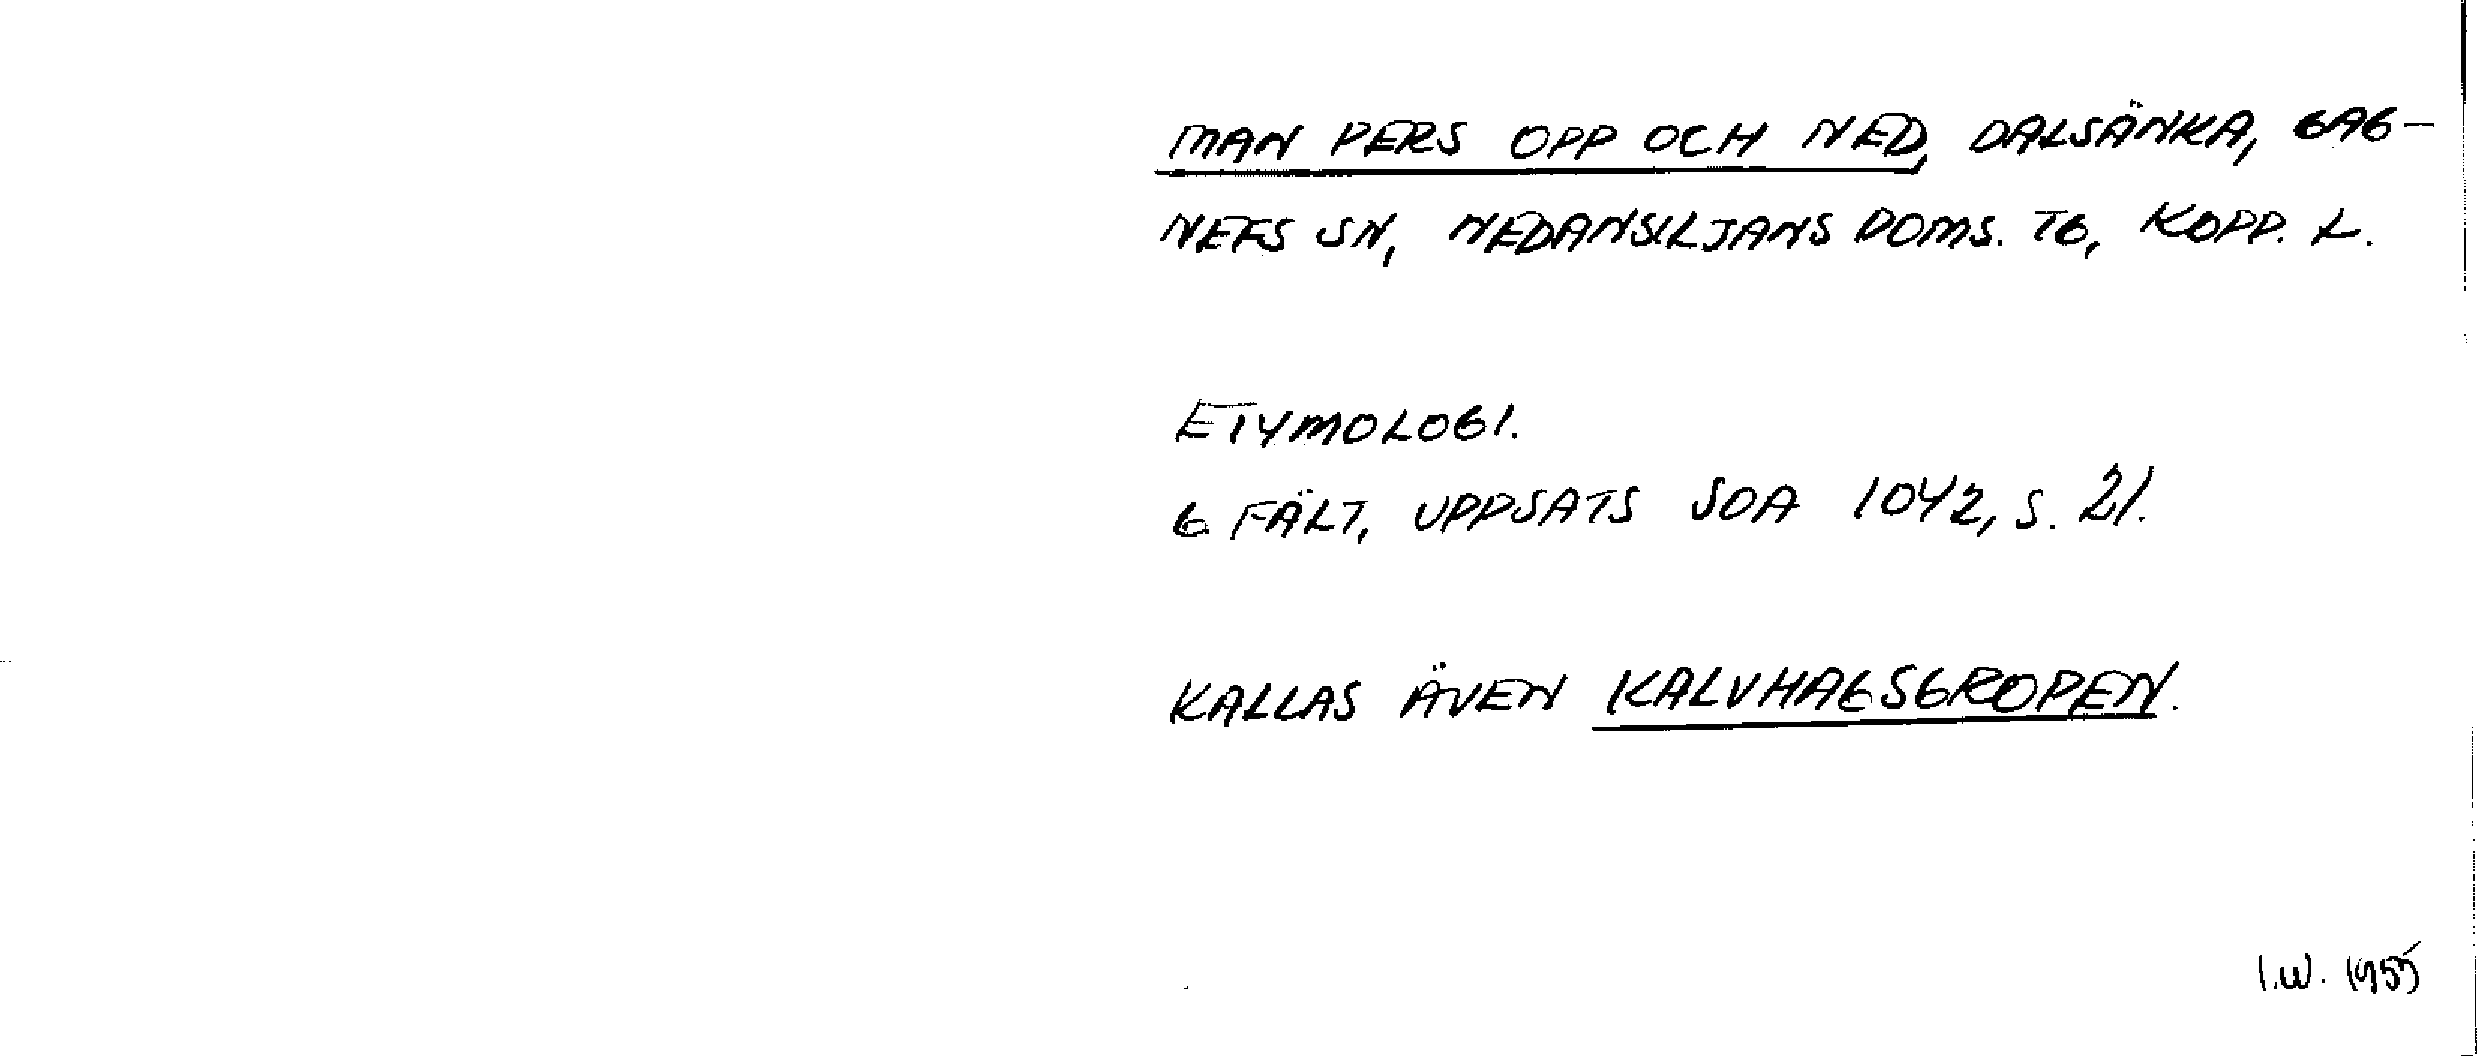 MAN PERS OPP OCH NED, DALSÄNKA, GAG-
NEFS SN, NEDANSILJANS DOMS. TG, KOPP. L.
ETYMOLOGI.
G FÄLT, UPPSATS SOA 1042, S. 21.
KALLAS ÄVEN KALVHAGSGROPEN.
I.W. 1955